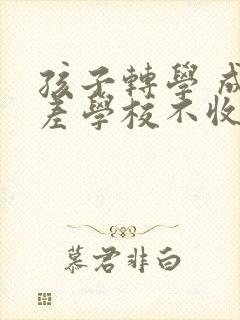 孩子轉學 成
差學校不收
慕君非白